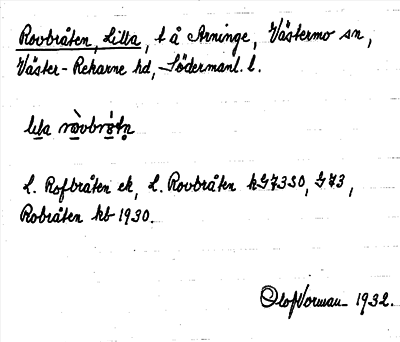 Rovbråten, Lilla, t å Arninge, Västermo sn,
Väster-Rekarne hd, Södermanl. l.
lila ròvbrotn
L. Rofbråten ek, L. Rovbråten hG7350, G73,
Robråten kb 1930.
Olof Norman 1932.